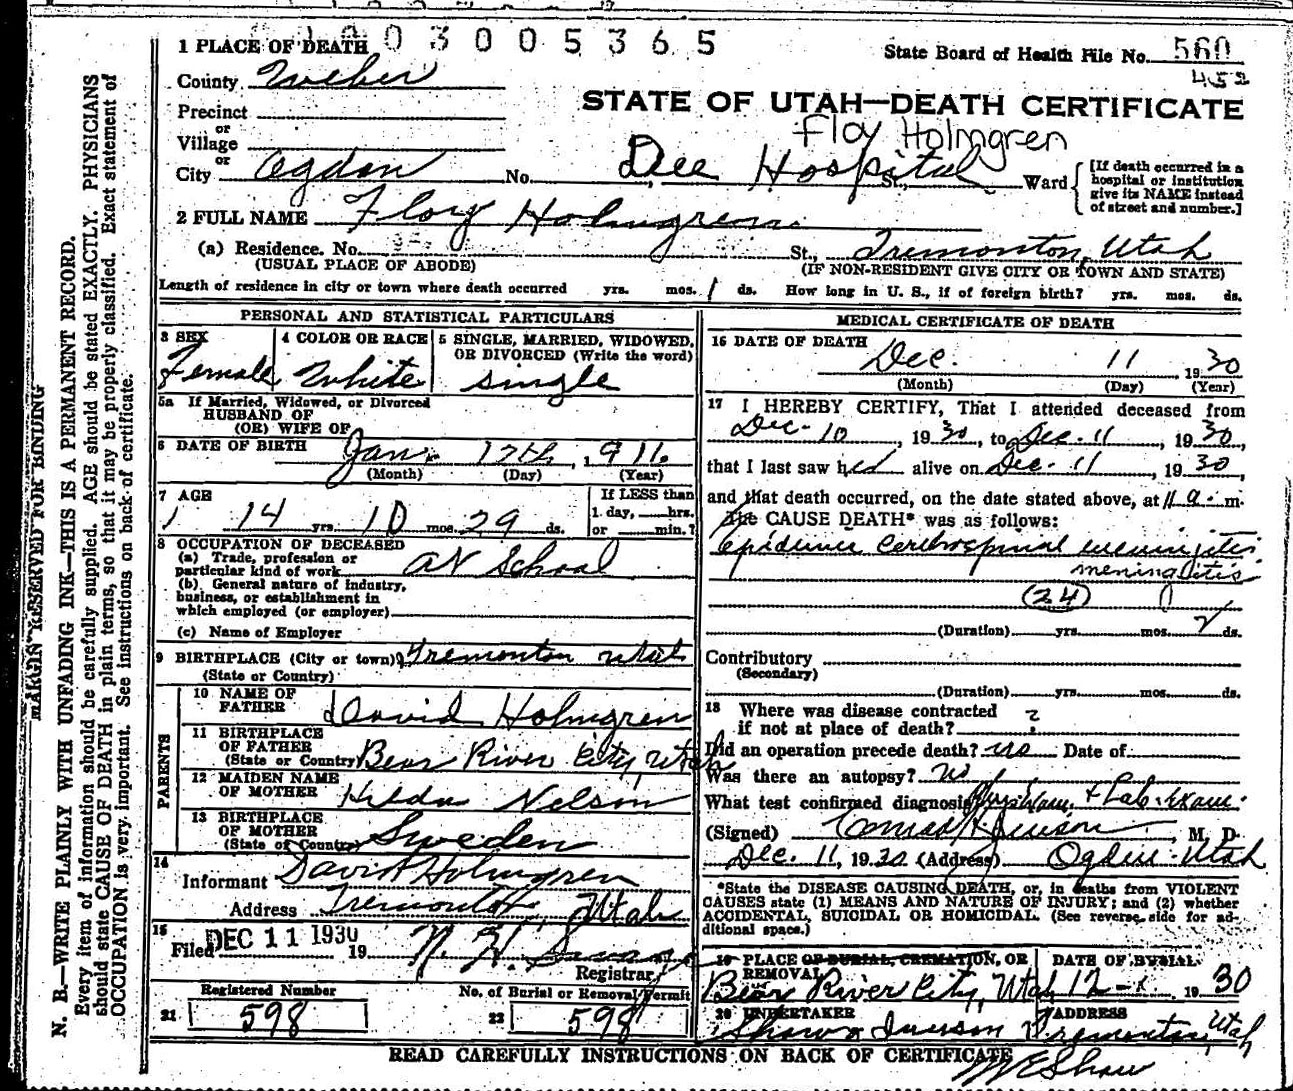 003005365
1 PLACE OF DEATH
State Board of Health File No. 560
452
County Weber
STATE OF UTAH—DEATH CERTIFICATE
Precinct
or
Village
Floy Holmgren
or
City Ogden No. Dee Hospital St., Ward
[If death occurred in a hospital or institution give its NAME instead of street and number.]
2 FULL NAME Floy Holmgren
(a) Residence. No. St., Tremonton, Utah
(USUAL PLACE OF ABODE) (IF NON-RESIDENT GIVE CITY OR TOWN AND STATE)
Length of residence in city or town where death occurred yrs. mos. 1 ds. How long in U. S., if of foreign birth? yrs. mos. ds.
PERSONAL AND STATISTICAL PARTICULARS
3 SEX Female
4 COLOR OR RACE White
5 SINGLE, MARRIED, WIDOWED, OR DIVORCED (Write the word) Single
5a If Married, Widowed, or Divorced
HUSBAND OF
(OR) WIFE OF
6 DATE OF BIRTH Jan. 12th, 1916
(Month) (Day) (Year)
7 AGE 14 yrs. 10 mos. 29 ds.
If LESS than
1 day, hrs.
or min.?
8 OCCUPATION OF DECEASED
(a) Trade, profession or
particular kind of work At School
(b) General nature of industry,
business, or establishment in
which employed (or employer)
(c) Name of Employer
9 BIRTHPLACE (City or town) Tremonton Utah
(State or Country)
PARENTS
10 NAME OF FATHER David Holmgren
11 BIRTHPLACE OF FATHER (State or Country) Bear River City, Utah
12 MAIDEN NAME OF MOTHER Hilda Nelson
13 BIRTHPLACE OF MOTHER (State or Country) Sweden
14
Informant David Holmgren
Address Tremonton, Utah
15
Filed DEC 11 1930 19
Registrar
Registered Number
21 598
No. of Burial or Removal Permit
22 598
MEDICAL CERTIFICATE OF DEATH
16 DATE OF DEATH
Dec. 11 1930
(Month) (Day) (Year)
17 I HEREBY CERTIFY, That I attended deceased from
Dec. 10, 1930, to Dec. 11, 1930,
that I last saw her alive on Dec. 11, 1930,
and that death occurred, on the date stated above, at 11 a. m.
The CAUSE DEATH* was as follows:
Epidemic Cerebrospinal meningitis
meningitis
(24)
(Duration) yrs. mos. 2 ds.
Contributory
(Secondary)
(Duration) yrs. mos. ds.
18 Where was disease contracted
if not at place of death? ?
Did an operation precede death? no Date of
Was there an autopsy? no
What test confirmed diagnosis? Phys. Exam. + Lab. exam.
(Signed) Conrad H. Jenson, M. D.
Dec. 11, 1930 (Address) Ogden Utah
*State the DISEASE CAUSING DEATH, or, in deaths from VIOLENT
CAUSES state (1) MEANS AND NATURE OF INJURY; and (2) whether
ACCIDENTAL, SUICIDAL OR HOMICIDAL. (See reverse side for ad-
ditional space.)
19 PLACE OF BURIAL, CREMATION, OR REMOVAL
Bear River City, Utah
DATE OF BURIAL
12- 1930
20 UNDERTAKER
Shaw & Iverson
ADDRESS
Tremonton, Utah
READ CAREFULLY INSTRUCTIONS ON BACK OF CERTIFICATE
Shaw
MARGIN RESERVED FOR BINDING
N. B.—WRITE PLAINLY WITH UNFADING INK—THIS IS A PERMANENT RECORD.
Every item of information should be carefully supplied. AGE should be stated EXACTLY. PHYSICIANS
should state CAUSE OF DEATH in plain terms, so that it may be properly classified. Exact statement of
OCCUPATION is very important. See instructions on back of certificate.